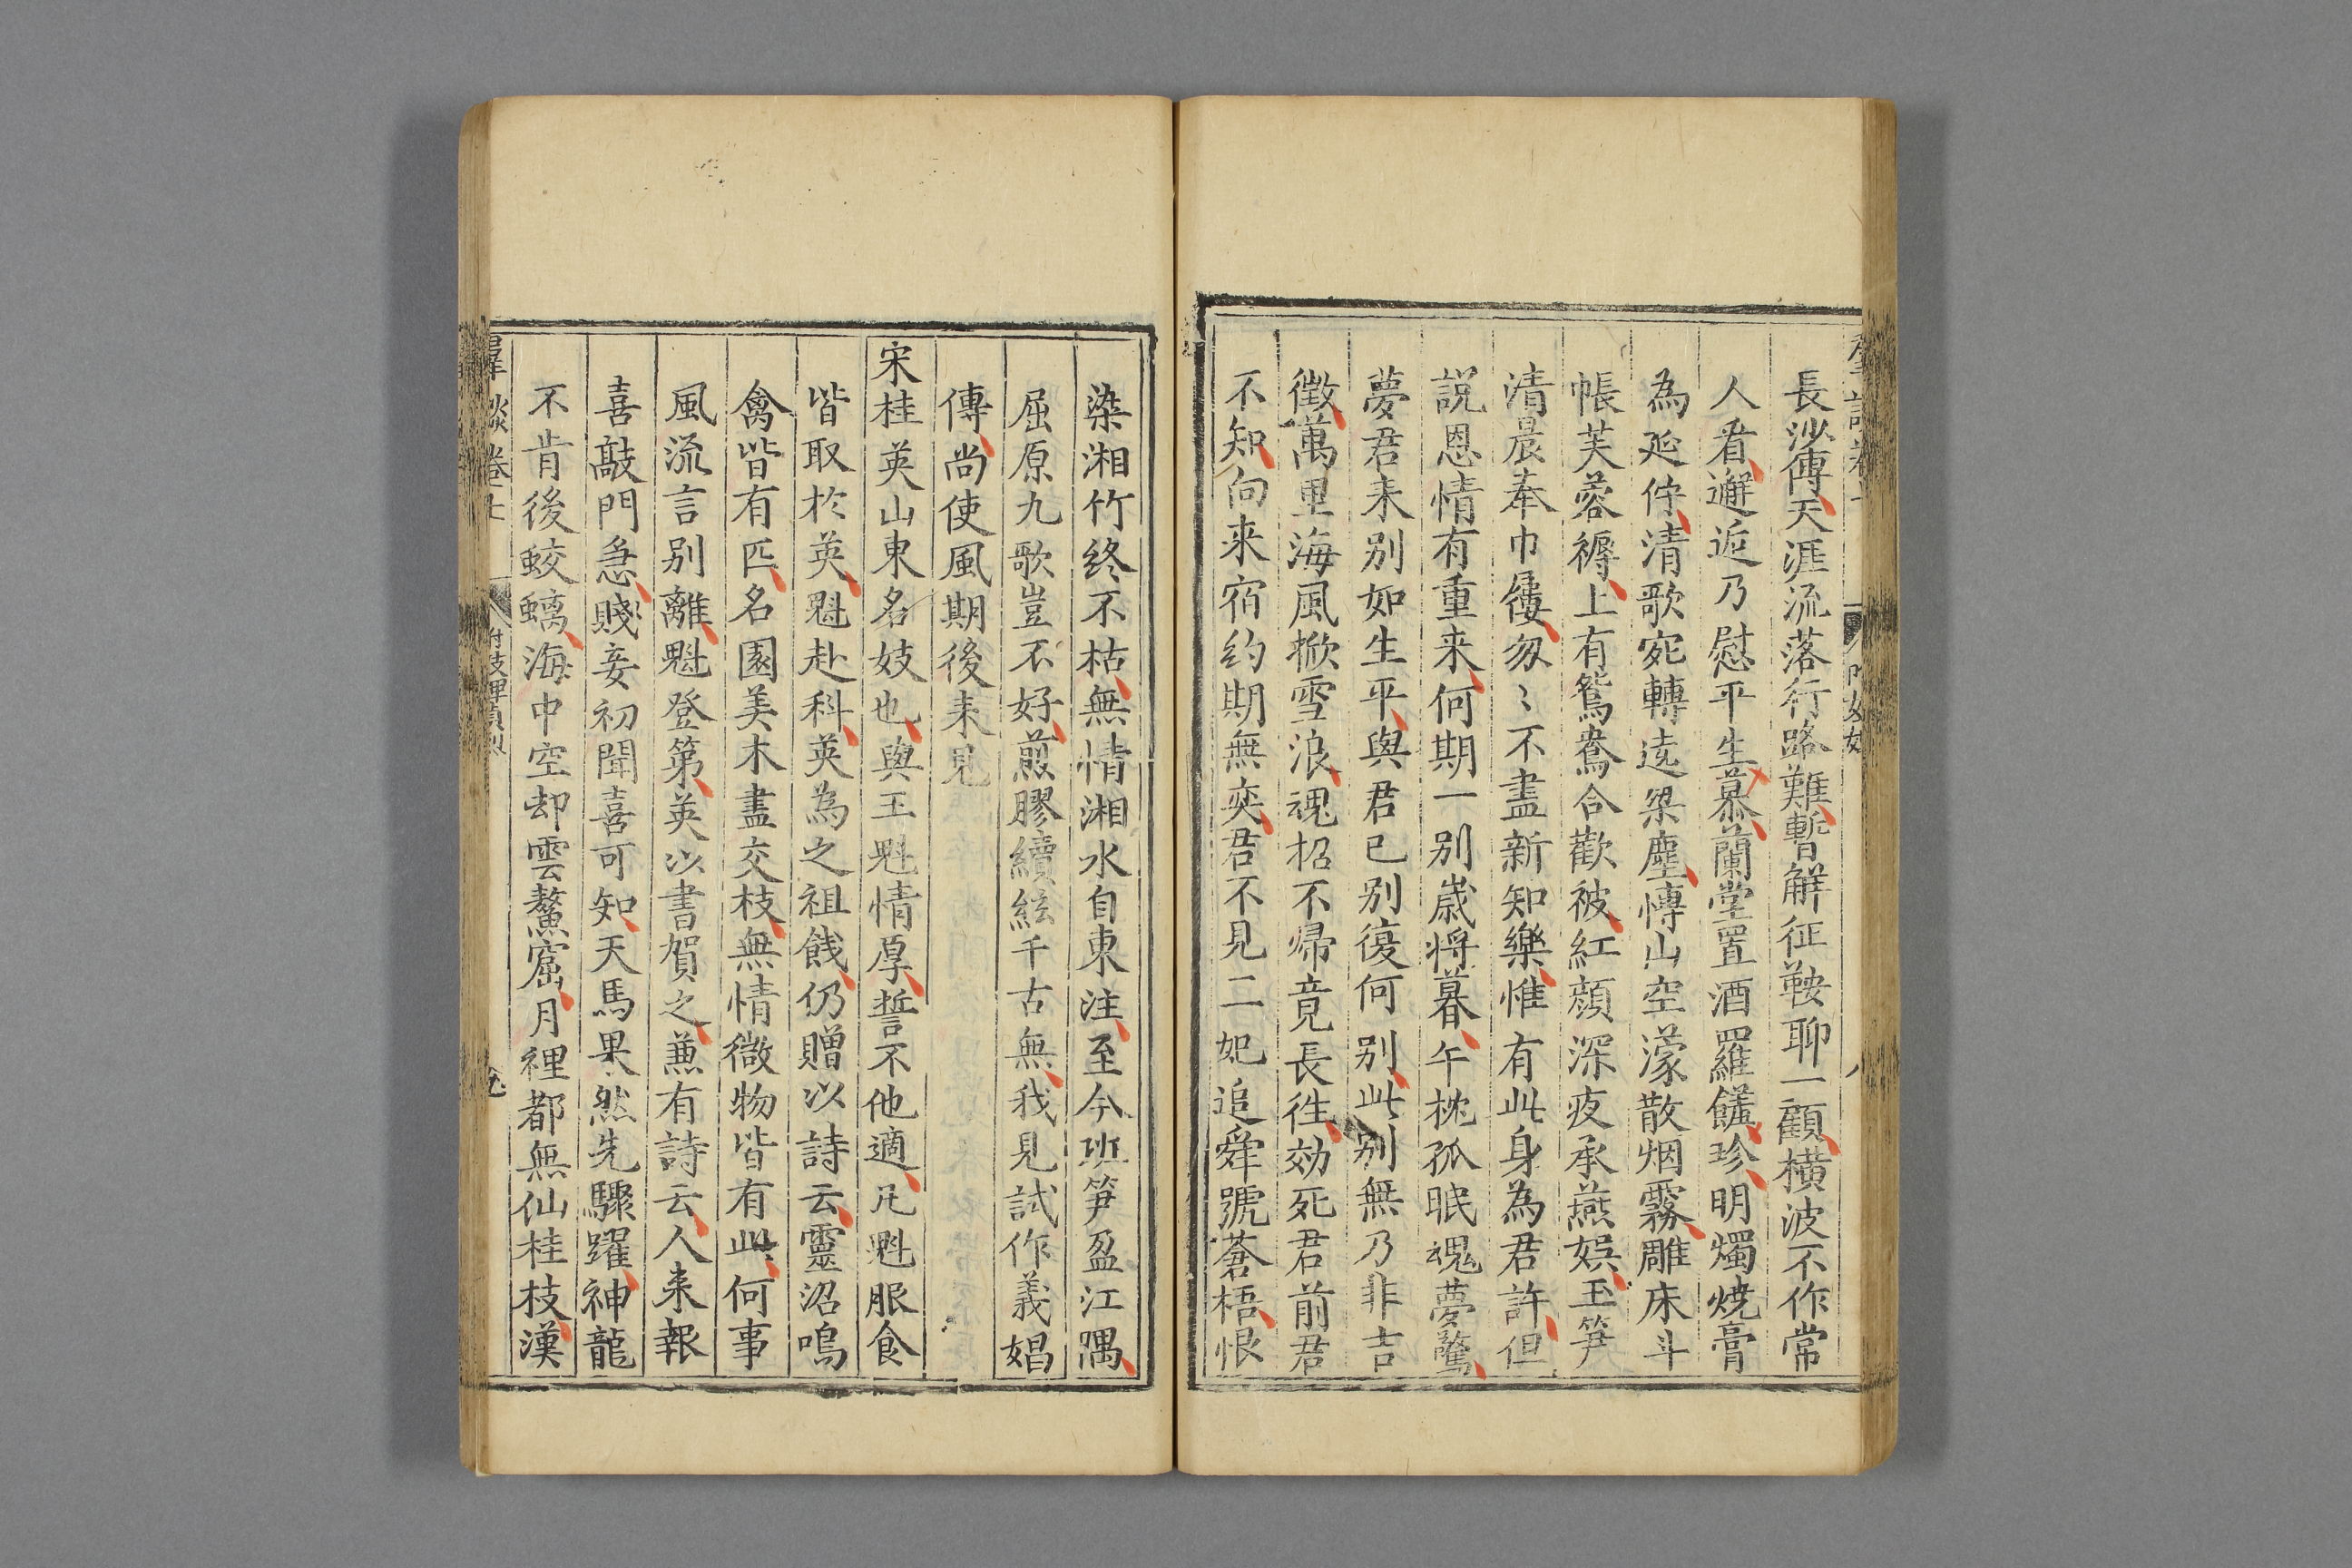 長沙傅天涯流落行路難暫解征鞍聊一顧橫波不作常
人看邂逅乃慰平生慕蘭堂置酒羅饈珍明燭燒膏
為延佇清歌宛轉遶梁塵慱山空濛散烟霧雕床斗
帳芙蓉褥上有鴛鴦合歡被紅顏深夜承燕娛玉笋
清晨奉巾屨匆〻不盡新知樂惟有此身為君許但
説恩情有重来何期一别歲将暮午枕孤眠魂夢驚
夢君来别如生平與君已别復何别此别無乃非吉
徵萬里海風掀雪浪魂招不歸竟長徃効死君前君
不知向来宿約期無奕君不見二妃追舜號蒼梧恨
染湘竹終不枯無情湘水自東注至今班笋盈江隅
屈原九歌豈不好煎膠續絃千古無我見試作義娼
傳尚使風期後来見
宋桂英山東名妓也與王魁情厚誓不他適凡魁服食
皆取於英魁赴科英為之祖餞仍贈以詩云靈沼鳴
禽皆有匹名園美木盡交枝無情微物皆有此何事
風流言别離魁登第英以書賀之蕙有詩云人来報
喜敲門急賤妾初聞喜可知天馬果然先驟躍神龍
不肯後蛟螭海中空却雲鰲窟月裡都無仙桂枝漢